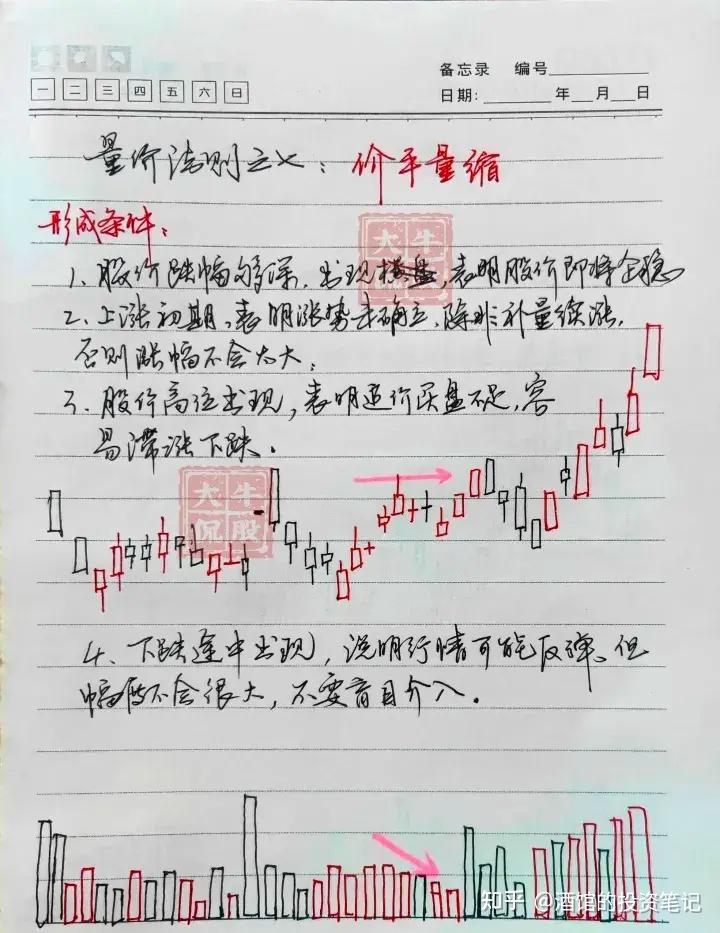 备忘录 编号
一 二 三 四 五 六 日
日期: 年 月 日
量价法则之七：价平量缩
形成条件：
1、股价跌幅够深，出现横盘，表明股价即将企稳
2、上涨初期，表明涨势未确立，除非补量续涨，
否则涨幅不会太大；
3、股价高位出现，表明追价买盘不足，容
易滞涨下跌。
大牛
侃股
大牛
4、下跌途中出现，说明行情可能反弹，但
幅度不会很大，不要盲目介入。
知乎 @酒馆的投资笔记